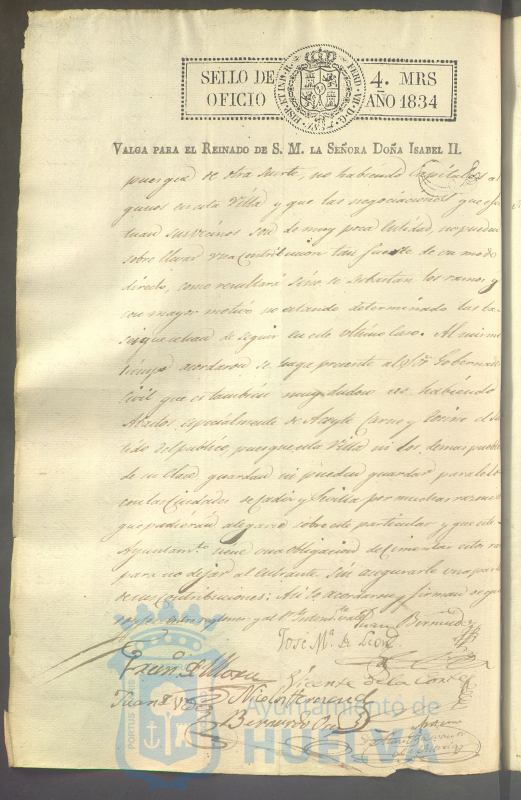 SELLO DE OFICIO 4. MRS AÑO 1834
HISP. ET IND. R. FERD. VII. D. G.
VALGA PARA EL REINADO DE S. M. LA SEÑORA DOÑA ISABEL II.
puesque de otra suerte, no habiendo Capitales al
gunos en esta Villa y que las negociaciones que efec
tuan sus vecinos son de muy poca entidad, no puedan
sobre llevar una Contribucion tan fuerte de un modo
directo, como resultará sino se subastan los ramos, y
con mayor motivo no estando determinado las ba
ses que se han de seguir en este ultimo caso. Al mismo
tiempo acordaron se haga presente al Sor. Gobernador
Civil que es tambien muy dudoso no habiendo
Abastos, especialmente de Aceyte Carne y
del publico, puesque esta Villa ni los demas pueblos
de su Clase guardan ni pueden guardar paralelo
con las Ciudades de Cadiz y Sevilla por muchas razones
que pudieran alegarse sobre este particular y que este
Ayuntamto. tiene una obligacion de
para no dejar al Entrante sin asegurarle una parte
de sus Contribuciones: Asi lo acordaron y firman
Juan Bermudez
José Ma. de Leon
Franco. de Mora
Vicente de la Corte
Juan
Nicolas
Bernardo
PORTUS
Ayuntamiento de
HUELVA